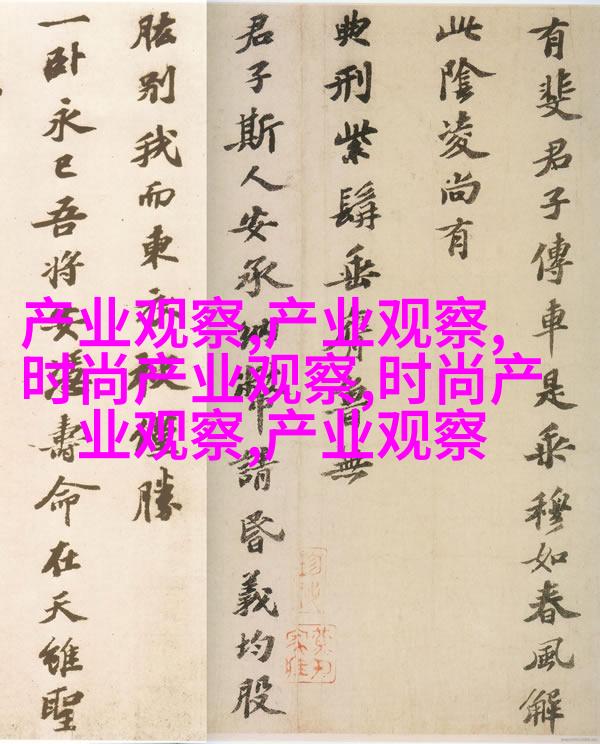 有斐君子傳車是乘穆如春風解
此陰凌尚有
典刑紫髯垂膺魯無
君子斯人安承納幣請昏義均股
肱別我而東衣袂僅勝
一臥永已吾將安憑壽命在天雖聖
产业观察,产业观察,
时尚产业观察,时尚产
业观察,产业观察